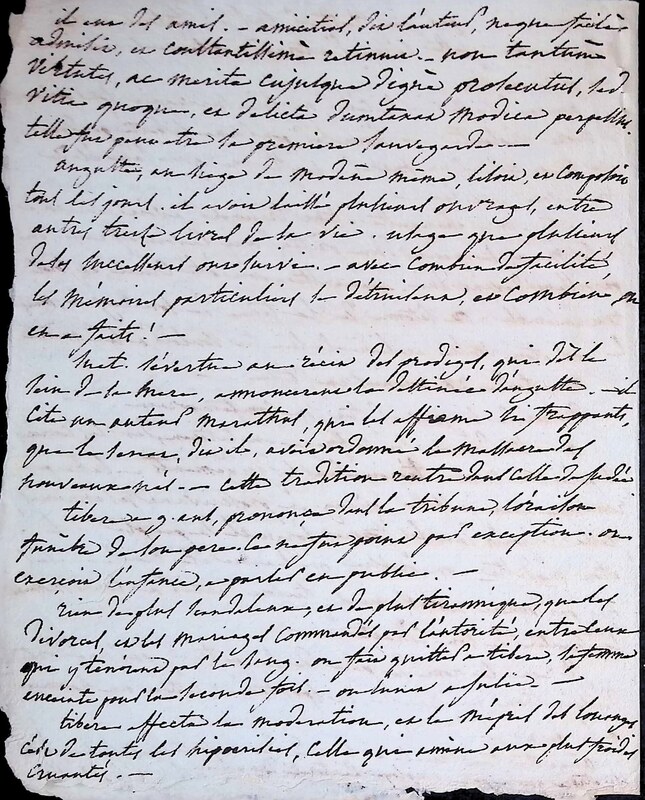 il eut des amis. – amicitias, dit l'auteur, neque facile
admisit, et constantissime retinuit. – non tantum
virtutes, ac merita cujusque digne prosecutus, sed
vitia quoque, et delicta dumtaxat modica perpessus.
telle fut peut etre sa premiere sauvegarde –
auguste, au siege de modene même, lisoit, et composoit
tous les jours. il avoit laissé plusieurs ouvrages, entre
autres treize livres de sa vie. usage que plusieurs
de ses successeurs ont suivi. – avec combien de facilité,
les mémoires particuliers se détruisent, et combien, on
en a faits! –
suet. s'évertue au récit des prodiges, qui dès le
sein de sa mere, annoncerent la destinée d'auguste. – il
cite un auteur marathus, que les affirme si frappants,
que le senat, dit il, avoit ordonné le massacre des
nouveaux nés. – cette tradition rentre dans celle de judée
tibere a 9 ans, prononça dans la tribune, l'oraison
funèbre de son pere. ce ne fut point par exception. on
exerçoit l'enfance, a parler en public. –
rien de plus scandaleux, et de plus tirannique, que les
divorces, et les mariages commandés par l'autorité, entre ceux
qui y tenoient par le sang. on fait quitter a tibere, sa femme
enceinte pour la seconde fois. – on l'unit a julie. –
tibere affecta la moderation, et le mépris des louanges
c'est de toutes les hipocrisies, celle qui amène aux plus froides
cruautés. –